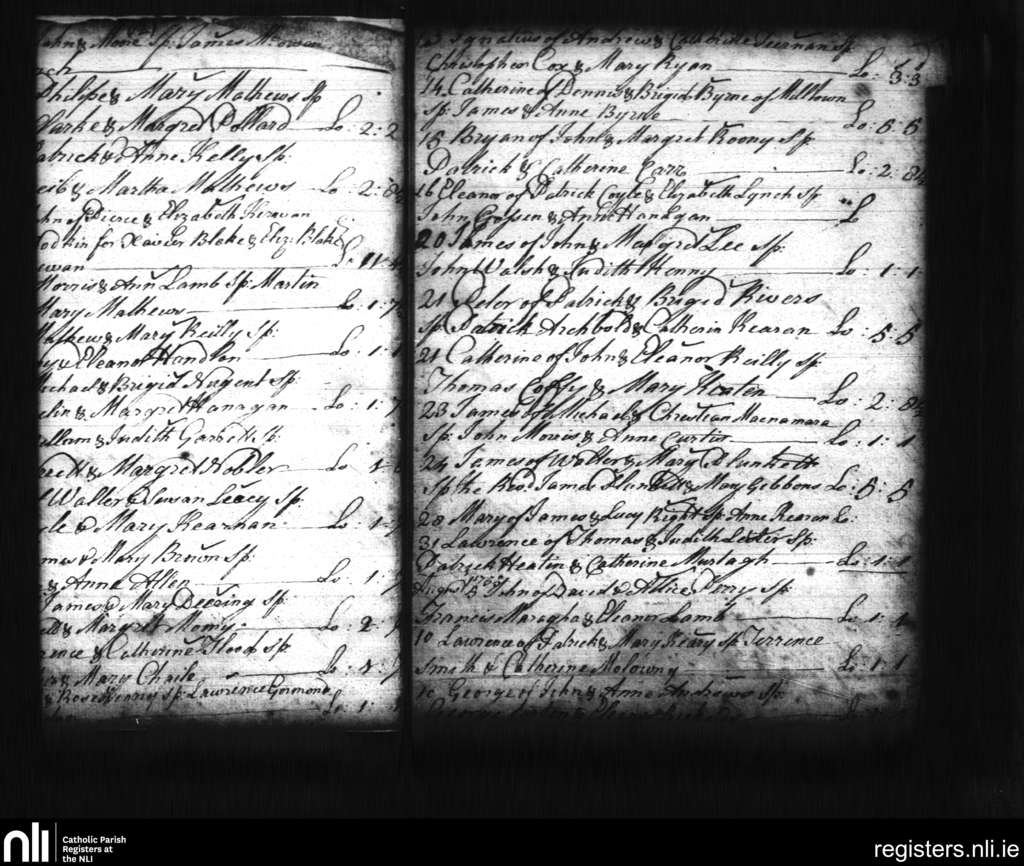 John & Moore Sp: James McOwen
Philipe & Mary Mathews Sp
Clarke & Margret Pollard Lo: 2: 2
Patrick & Anne Kelly Sp:
& Martha Mathews Lo: 2: 8½
John of Pierce & Elizabeth Kirwan
for Xavier Blake & Eliz: Blake
Lo: 11
Morris & Ann Lamb Sp: Martin
Mary Mathews Lo: 1: 7
Mathew & Mary Reilly Sp:
& Eleanor Handlon Lo: 1: 1
Michael & Brigid Nugent Sp:
& Margret Hanagan Lo: 1: 7
William & Judith Sp:
& Margret Nobler Lo
Walter & Susan Leacy Sp:
& Mary Kearnan Lo: 1
James & Mary Brown Sp:
& Anne Allen Lo: 1:
James & Mary Deering Sp:
& Margret Lo: 2
& Catherine Flood Sp:
& Mary Lo:
& Rose Kenny Sp: Lawrence Gormond
Lo: 1:
Ignatius of Andrew & Catherine Sp:
Christopher Cox & Mary Ryan Lo: 3: 3
14 Catherine of Dennis & Brigid Byrne of Milltown
Sp: James & Anne Byrne Lo: 5: 5
15 Bryan of John & Margret Roony Sp:
Patrick & Catherine Carr Lo: 2: 8½
16 Eleanor of Patrick Coyle & Elizabeth Lynch Sp
John & Anne Hanagan L
20 James of John & Margret Lee Sp:
John Walsh & Judith Kenny Lo: 1: 1
21 Peter of Patrick & Brigid Rivers
Sp: Patrick Archbold & Catherin Kearan Lo: 5: 5
21 Catherine of John & Eleanor Reilly Sp:
Thomas Coffy & Mary Heaten Lo: 2: 8½
23 James of Michael & Christian Macnamara
Sp: John Morris & Anne Curtis Lo: 1: 1
24 James of Walter & Mary Plunkett
Sp: the Revd. James Plunkett & Mary Gibbons Lo: 5: 5
28 Mary of James & Lucy Right Sp: Anne Kearon Lo:
31 Lawrence of Thomas & Judith Sp:
Patrick Heatin & Catherine Murtagh Lo: 1: 1
August John of David & Alice Terry Sp:
Francis & Eleanor Lamb Lo: 1: 1
10 Lawrence of Patrick & Mary Keary Sp: Terrence
Smith & Catherine Lo: 1: 1
10 George of John & Anne Andrews Sp:
nli
Catholic Parish
Registers at
the NLI
registers.nli.ie